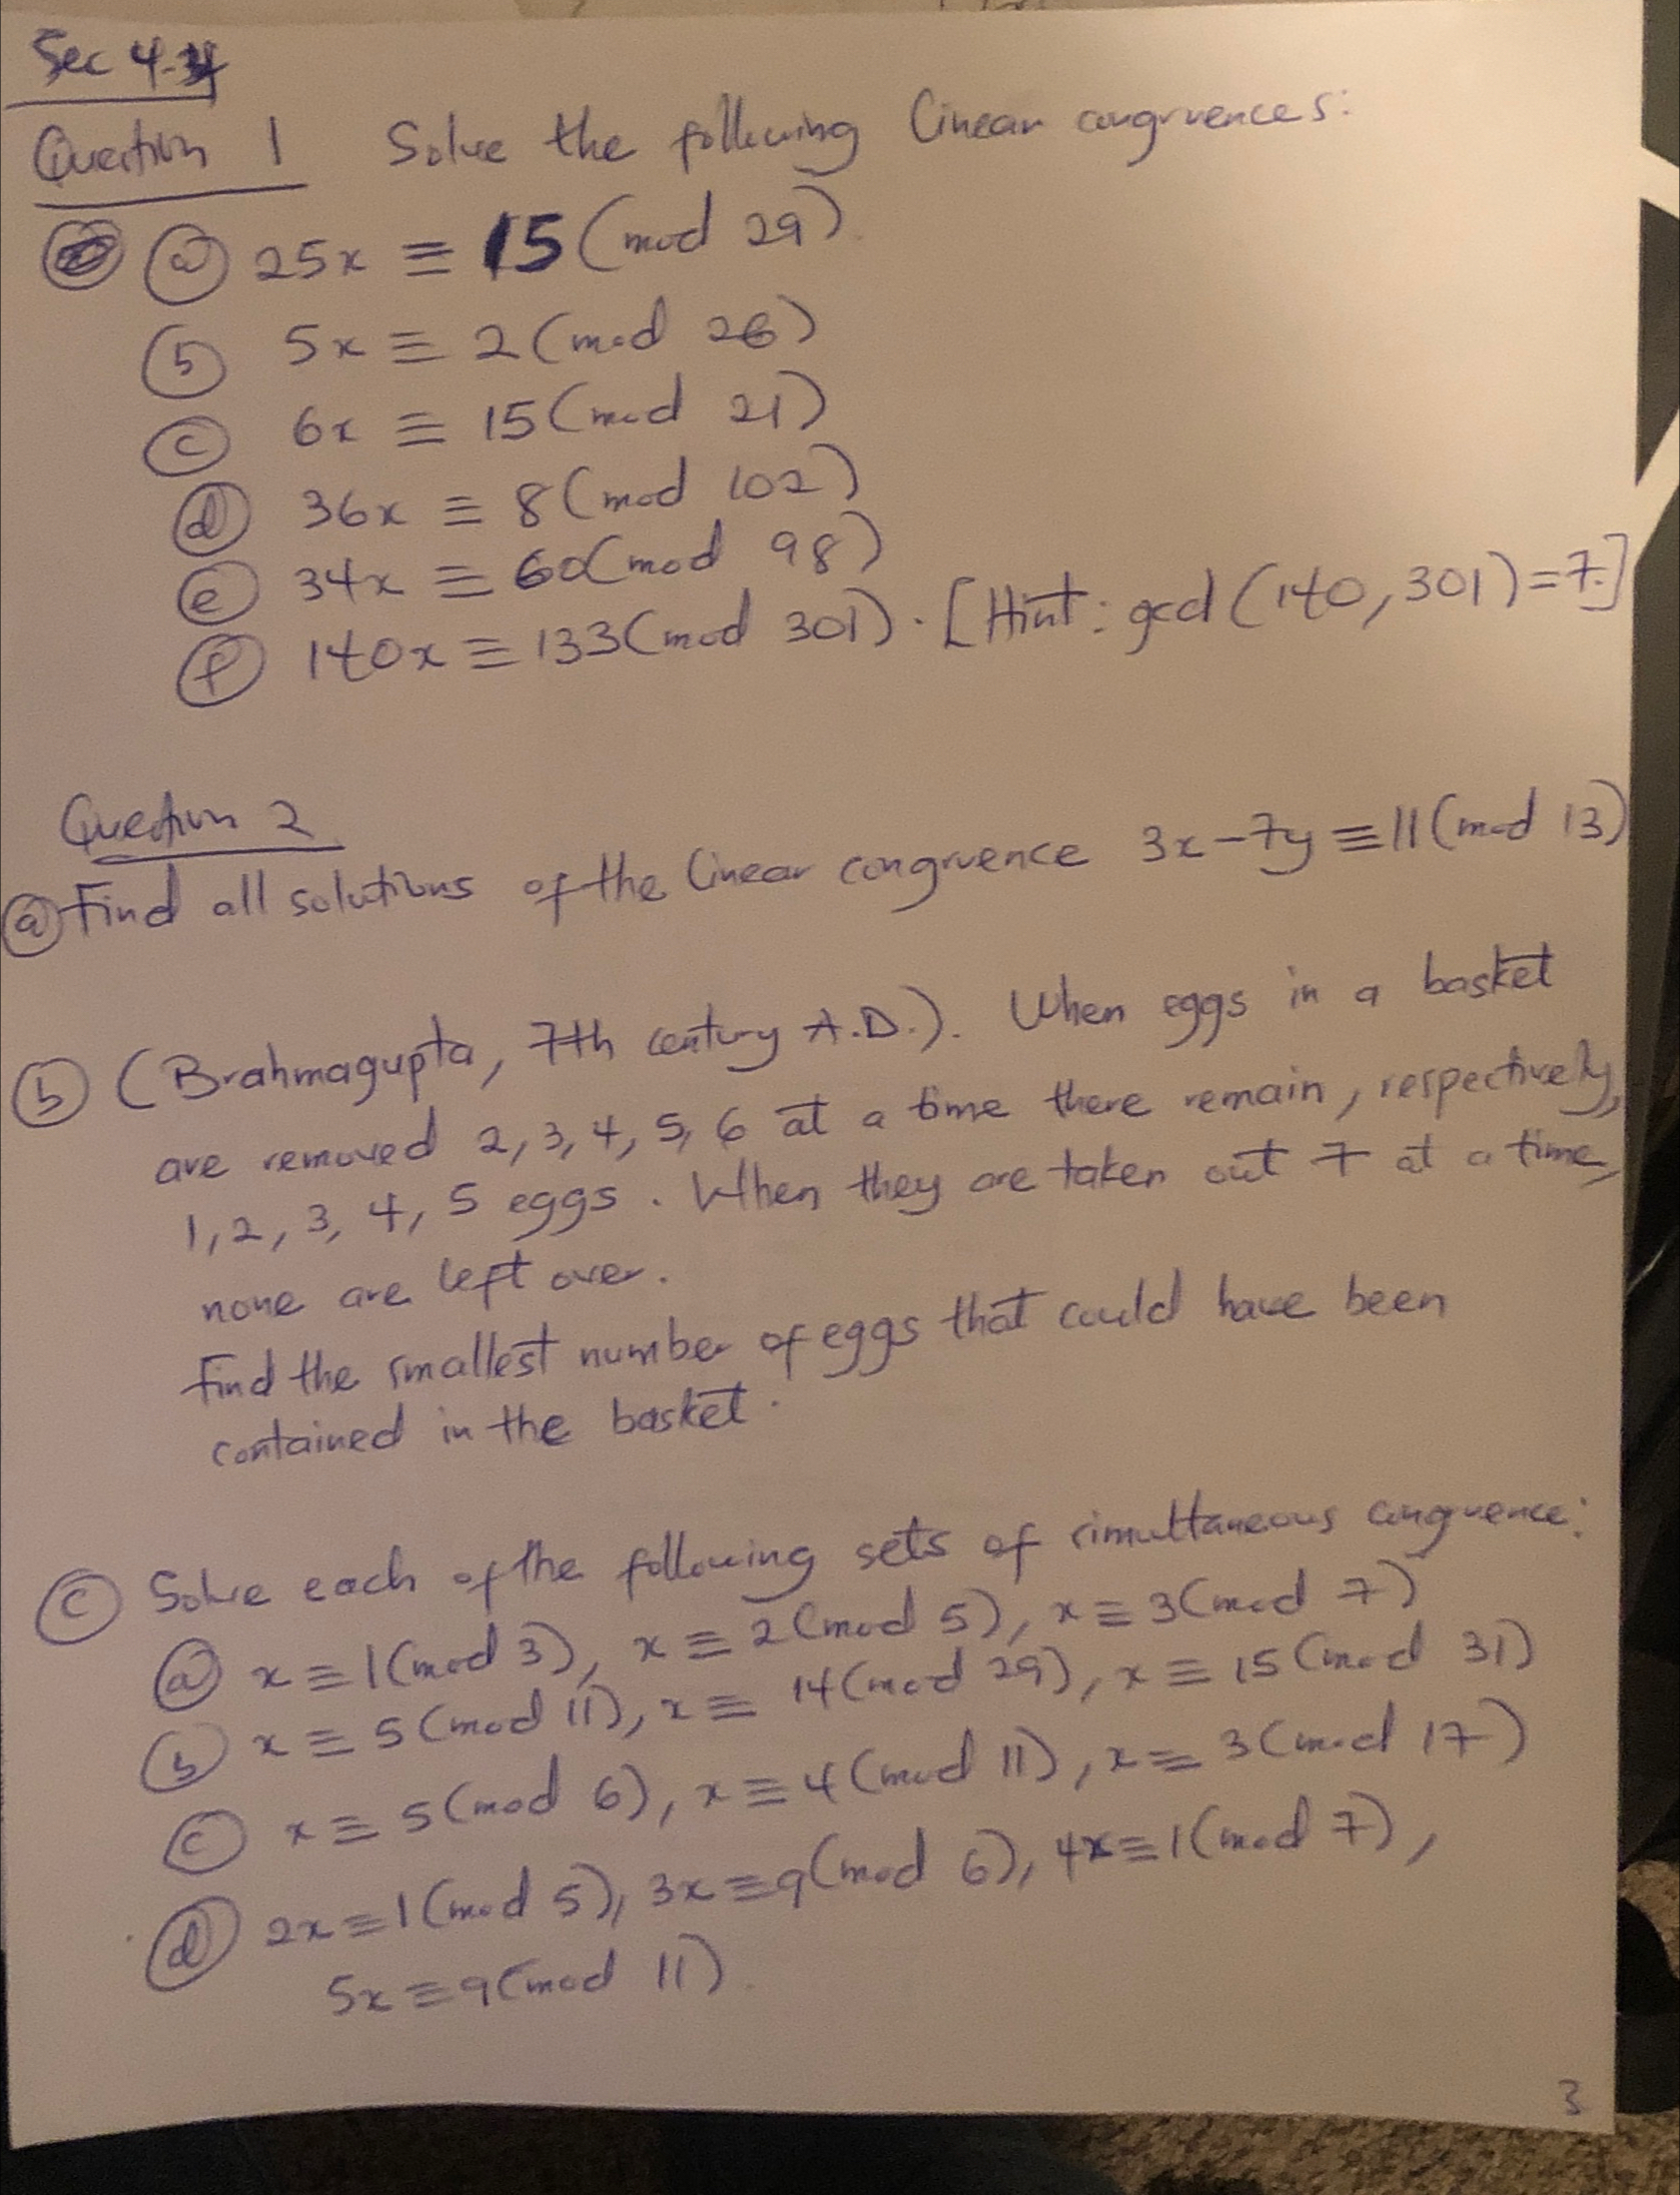 Sec 4.4
Question 1 Solve the following linear congruences:
(a) 25x ≡ 15 (mod 29).
(b) 5x ≡ 2 (mod 26)
(c) 6x ≡ 15 (mod 21)
(d) 36x ≡ 8 (mod 102)
(e) 34x ≡ 60 (mod 98)
(f) 140x ≡ 133 (mod 301). [Hint: gcd (140, 301) = 7.]
Question 2
(a) Find all solutions of the linear congruence 3x - 7y ≡ 11 (mod 13)
(b) (Brahmagupta, 7th century A.D.). When eggs in a basket
are removed 2, 3, 4, 5, 6 at a time there remain, respectively,
1, 2, 3, 4, 5 eggs. When they are taken out 7 at a time,
none are left over.
Find the smallest number of eggs that could have been
contained in the basket.
(c) Solve each of the following sets of simultaneous congruence:
(a) x ≡ 1 (mod 3), x ≡ 2 (mod 5), x ≡ 3 (mod 7)
(b) x ≡ 5 (mod 11), x ≡ 14 (mod 29), x ≡ 15 (mod 31)
(c) x ≡ 5 (mod 6), x ≡ 4 (mod 11), x ≡ 3 (mod 17)
(d) 2x ≡ 1 (mod 5), 3x ≡ 9 (mod 6), 4x ≡ 1 (mod 7),
5x ≡ 9 (mod 11).
3